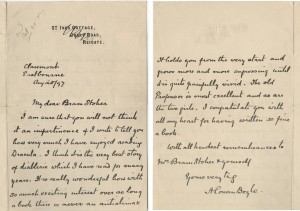 COTTAGE,
ROAD,
REIGATE.
Claremont
Eastbourne
Aug 20/97
My dear Bram Stoker
I am sure that you will not think
it an impertinence if I write to tell you
how very much I have enjoyed reading
Dracula. I think it is the very best story
of diablerie which I have read for many
years. It is really wonderful how with
so much exciting interest over so long
a book there is never an anticlimax
It holds you from the very start and
grows more and more engrossing until
it is quite painfully vivid. The old
Professor is most excellent and so are
the two girls. I congratulate you with
all my heart for having written so fine
a book.
With all kindest remembrances to
Mrs Bram Stoker & yourself
Yours very truly
A Conan Doyle